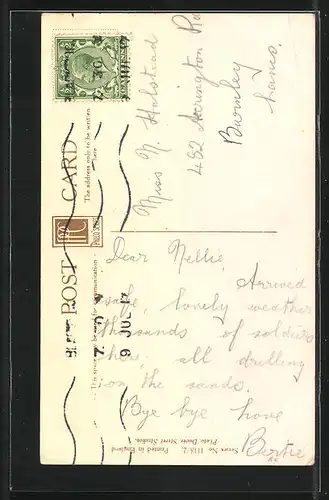 POST CARD
This space may be used for communication.
The address only to be written here.
7. 30
9 JUL 17
Miss N. Halstead
482 Accrington Rd
Burnley
Lancs.
Dear Nellie,
Arrived
safe, lovely weather
thousands of soldiers
here, all drilling
on the sands.
Bye bye love
Bertie
Printed in England